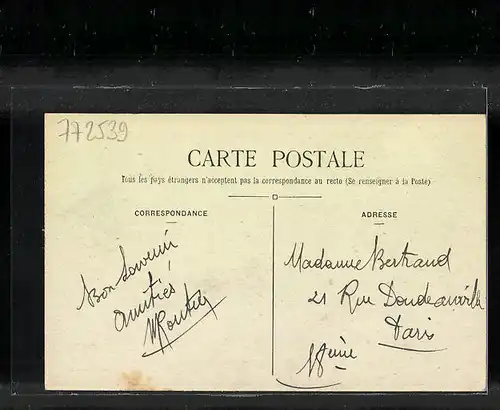 772539
CARTE POSTALE
Tous les pays étrangers n'acceptent pas la correspondance au recto (Se renseigner à la Poste)
CORRESPONDANCE
ADRESSE
Bon Souvenir
Amitiés
Madame Bertrand
21 Rue Doudeauville
Paris
18ème